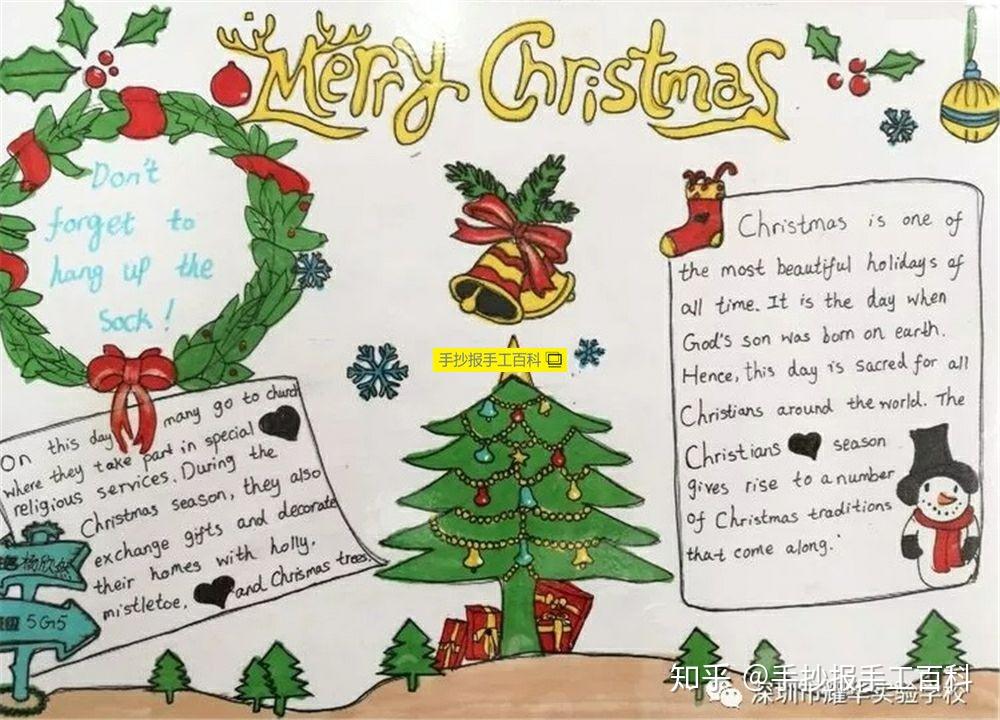 Merry Christmas
Don't
forget to
hang up the
Sock!
手抄报手工百科
Christmas is one of
the most beautiful holidays of
all time. It is the day when
God's son was born on earth.
Hence, this day is sacred for all
Christians around the world. The
Christians season
gives rise to a number
of Christmas traditions
that come along.
On this day many go to church
where they take part in special
religious services. During the
Christmas season, they also
exchange gifts and decorate
their homes with holly,
mistletoe, and Chrismas trees.
杨欣
5G5
知乎 @手抄报手工百科
深圳市耀华实验学校